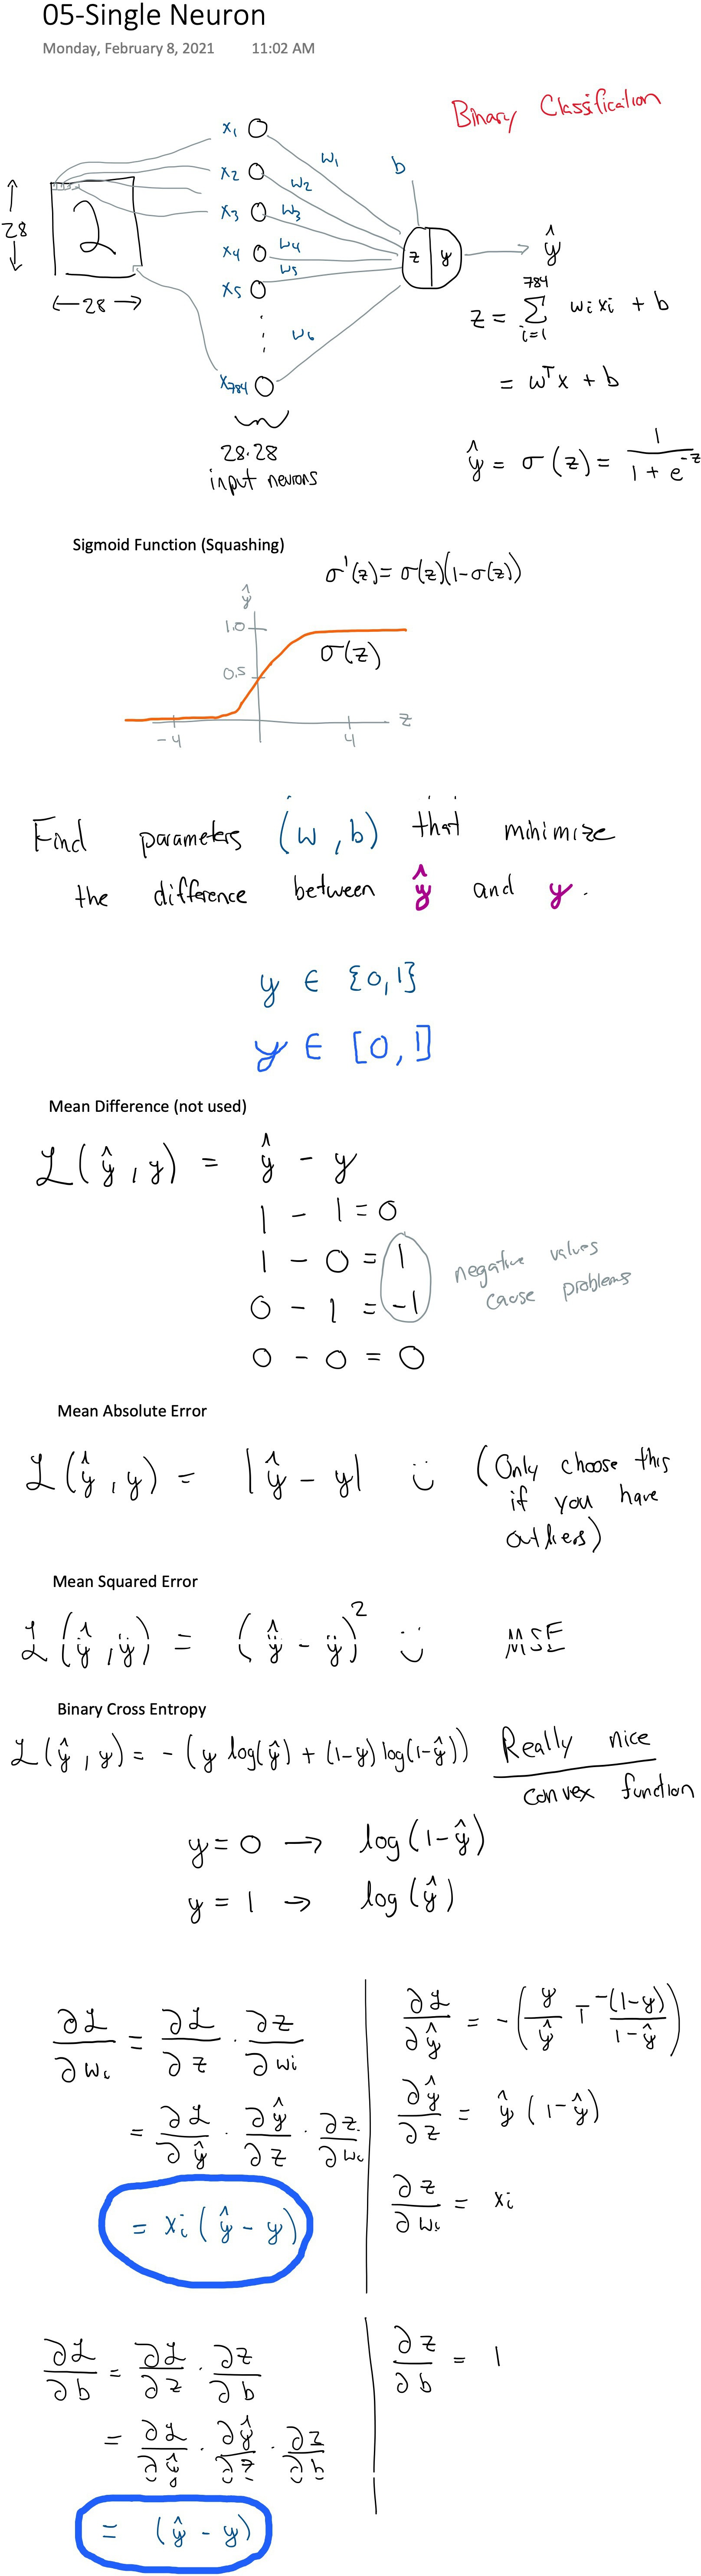 05-Single Neuron
Monday, February 8, 2021 11:02 AM
Binary Classification
x₁ w₁ b
x₂ w₂
x₃ w₃
x₄ w₄
x₅ w₅
w₆
x₇₈₄
28
2
28
z | y
ŷ
28·28
input neurons
z = Σ_{i=1}^{784} wᵢxᵢ + b
= wᵀx + b
ŷ = σ(z) = 1/(1 + e^{-z})
Sigmoid Function (Squashing)
σ'(z) = σ(z)(1-σ(z))
ŷ
1.0
σ(z)
0.5
-4 4 z
Find parameters (w, b) that minimize
the difference between ŷ and y.
y ∈ {0,1}
y ∈ [0,1]
Mean Difference (not used)
ℒ(ŷ, y) = ŷ - y
1 - 1 = 0
1 - 0 = 1
0 - 1 = -1
0 - 0 = 0
negative values
cause problems
Mean Absolute Error
ℒ(ŷ, y) = |ŷ - y| (Only choose this
if you have
outliers)
Mean Squared Error
ℒ(ŷ, y) = (ŷ - y)² MSE
Binary Cross Entropy
ℒ(ŷ, y) = -(y log(ŷ) + (1-y) log(1-ŷ)) Really nice
convex function
y = 0 → log(1-ŷ)
y = 1 → log(ŷ)
∂ℒ/∂wᵢ = ∂ℒ/∂z · ∂z/∂wᵢ
= ∂ℒ/∂ŷ · ∂ŷ/∂z · ∂z/∂wᵢ
= xᵢ(ŷ - y)
∂ℒ/∂ŷ = -(y/ŷ + -(1-y)/(1-ŷ))
∂ŷ/∂z = ŷ(1-ŷ)
∂z/∂wᵢ = xᵢ
∂ℒ/∂b = ∂ℒ/∂z · ∂z/∂b
= ∂ℒ/∂ŷ · ∂ŷ/∂z · ∂z/∂b
= (ŷ - y)
∂z/∂b = 1